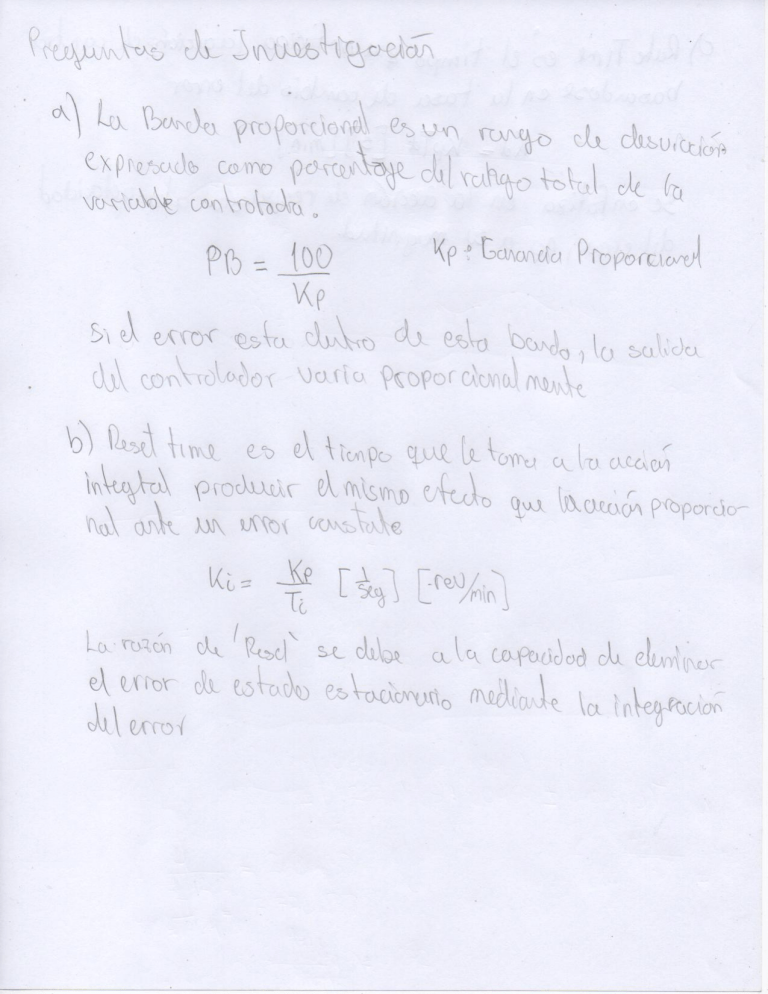 Preguntas de Investigación
a) La Banda proporcional es un rango de desviación
expresado como porcentaje del rango total de la
variable controlada.
PB = 100 / Kp    Kp: Ganancia Proporcional
Si el error esta dentro de esta banda, la salida
del controlador varia proporcionalmente
b) Reset time es el tiempo que le toma a la acción
integral producir el mismo efecto que la acción proporcio
nal ante un error constate
Ki = Kp / Ti [1/seg] [rev/min]
La razón de 'Reset' se debe a la capacidad de eleminar
el error de estado estacionario mediante la integración
del error